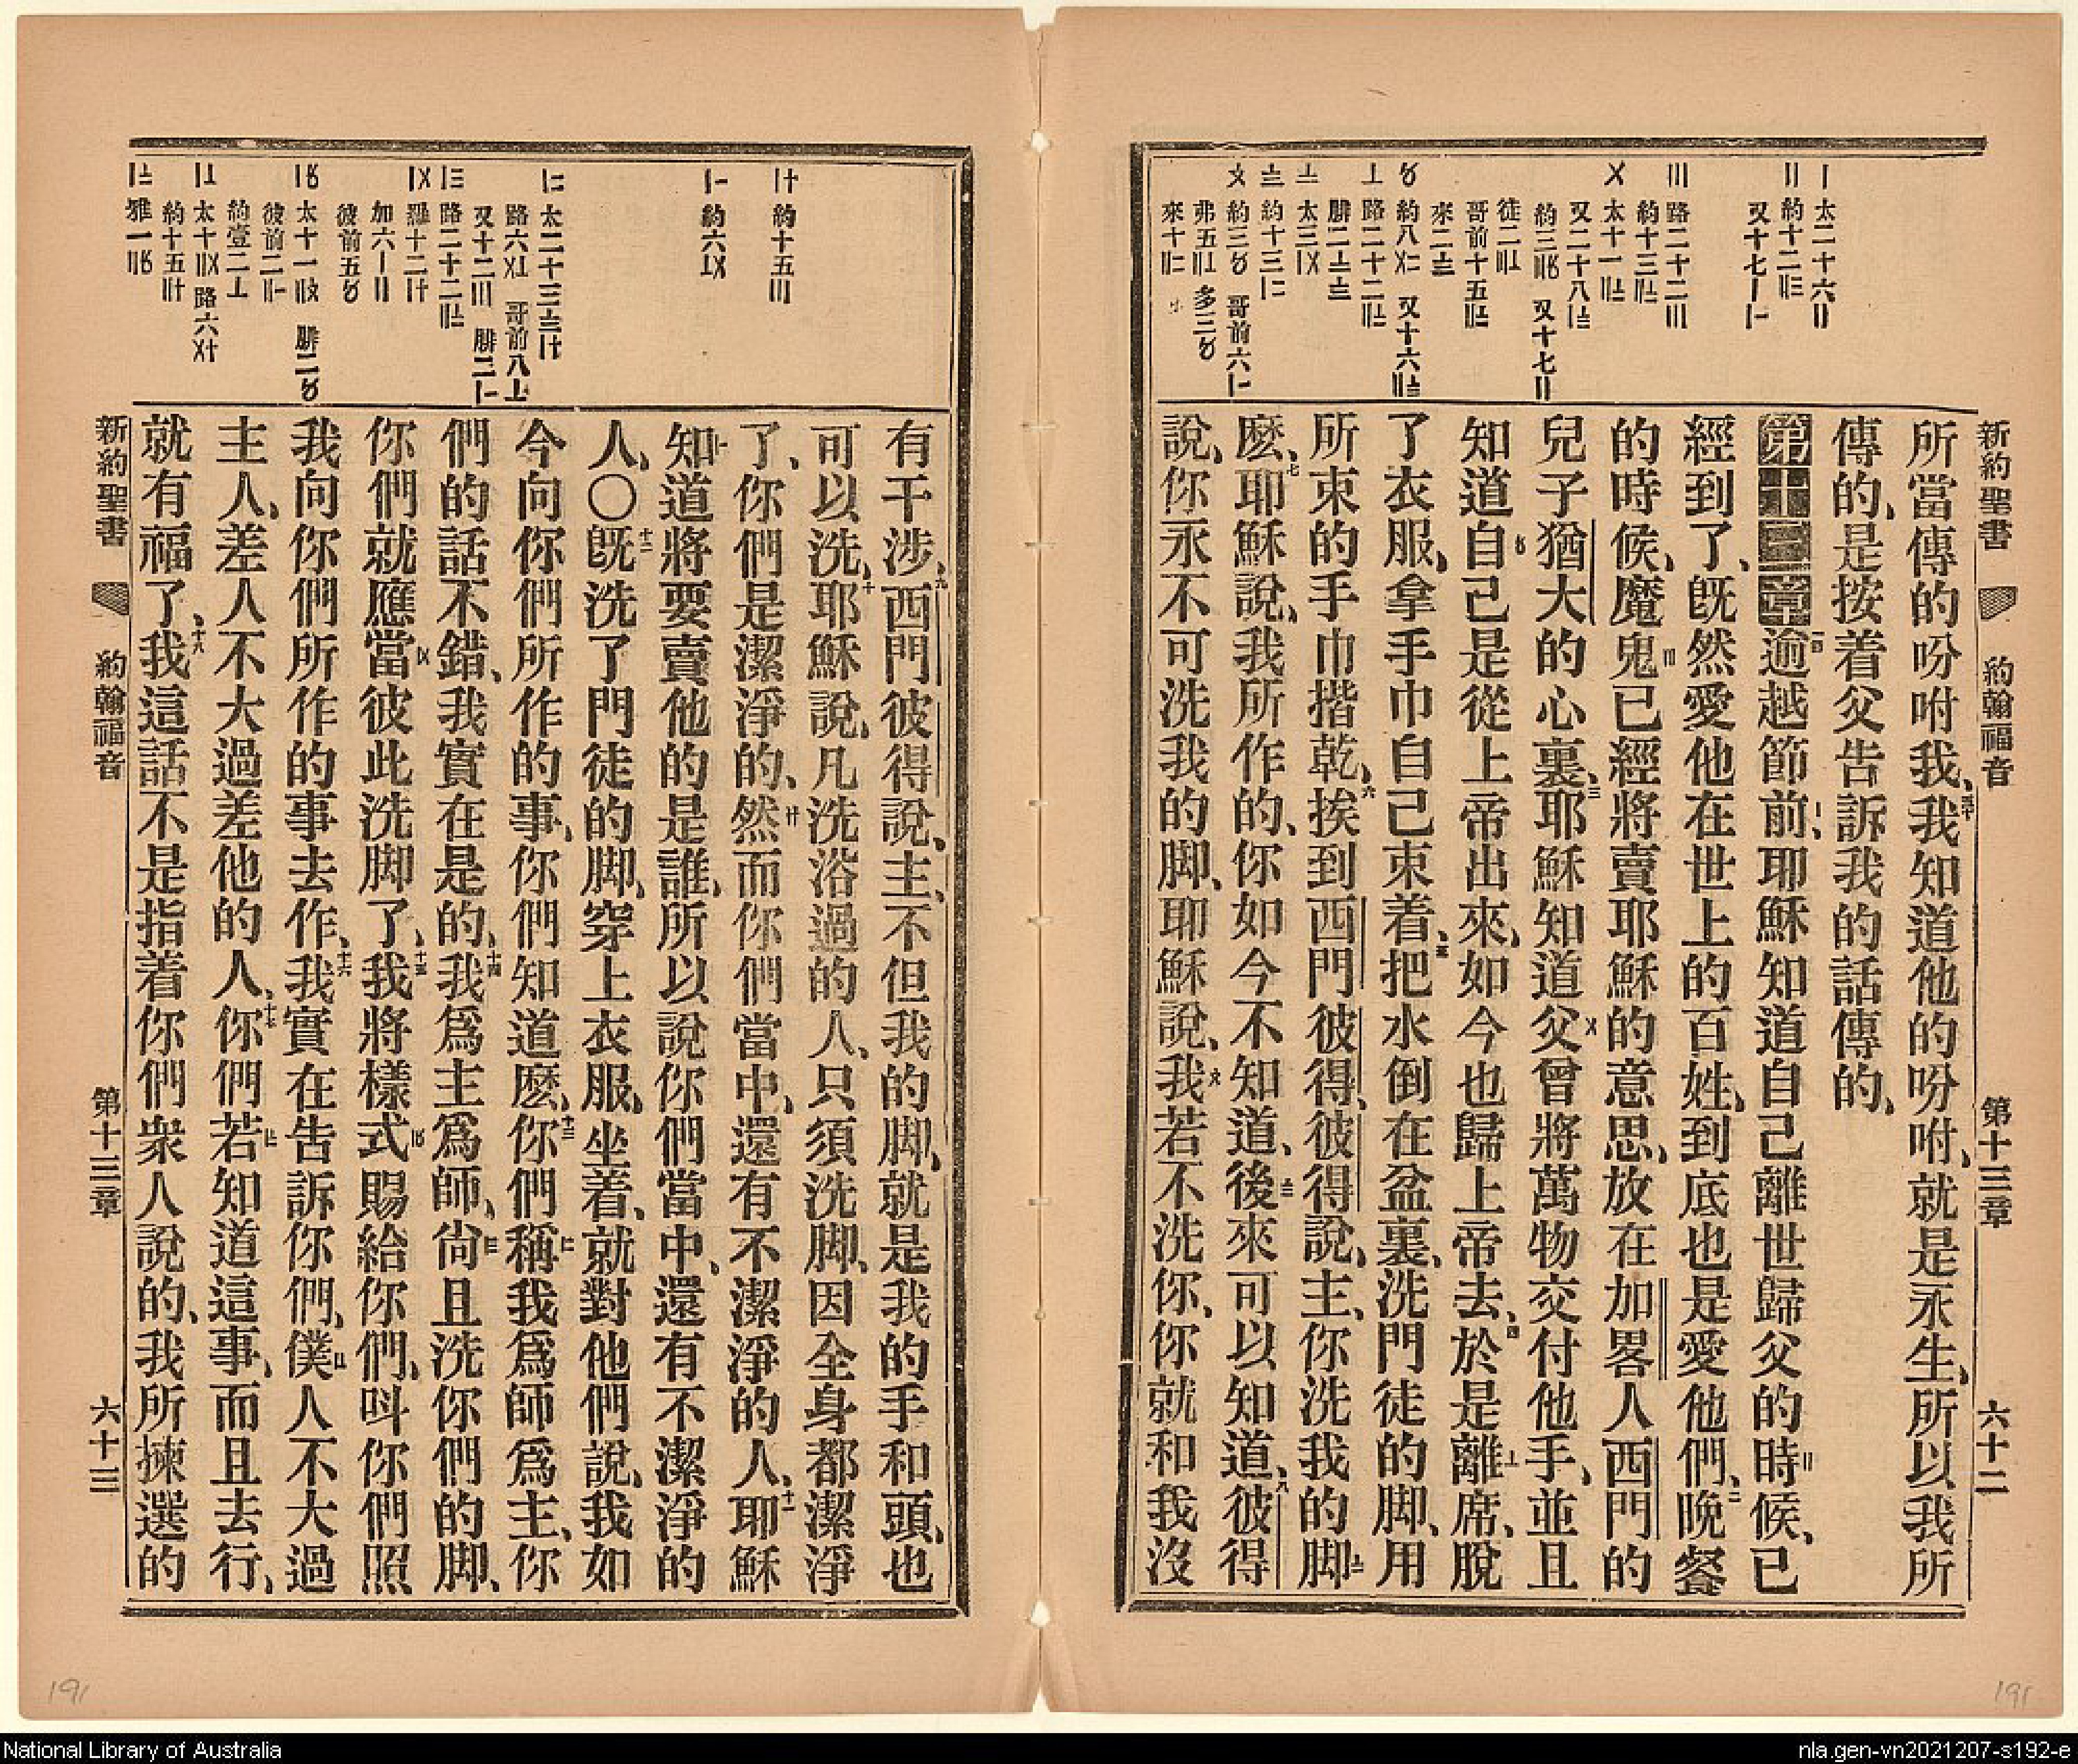 新約聖書 約翰福音 第十三章 六十二
一 太二十六〢
〢 約十二〣
又十七〡
〣 路二十二〣
約十三
〤 太十一
又二十八
約三 又十七〢
徒二
哥前十五
來二
〥 約八 又十六
〦 路二十二
腓二
太三
約十三
約三〥 哥前六
弗五 多三〥
來十
所當傳的吩咐我、四十我知道他的吩咐、就是永生、所以我所
傳的、是按着父告訴我的話傳的、
第十三章一逾越節前、耶穌知道自己離世歸父的時候、已
經到了、旣然愛他在世上的百姓、到底也是愛他們、二晚餐
的時候、魔鬼已經將賣耶穌的意思、放在加畧人西門的
兒子猶大的心裏、三耶穌知道父曾將萬物交付他手、並且
知道自己是從上帝出來、如今也歸上帝去、四於是離席、脫
了衣服、拿手巾自己束着、五把水倒在盆裏、洗門徒的脚、用
所束的手巾揩乾、六挨到西門彼得、彼得說、主、你洗我的脚
麽、七耶穌說、我所作的、你如今不知道、後來可以知道、八彼得
說、你永不可洗我的脚、耶穌說、我若不洗你、你就和我沒
約十五〣
約六
太二十三
路六 哥前八
又十二〣 腓二
路二十二
羅十二
加六〡〢
彼前五
太十一 腓二
彼前二
約壹二
太十 路六
約十五
雅一
有干涉、九西門彼得說、主、不但我的脚、就是我的手和頭、也
可以洗、十耶穌說、凡洗浴過的人、只須洗脚、因全身都潔淨
了、你們是潔淨的、然而你們當中、還有不潔淨的人、十一耶穌
知道將要賣他的是誰、所以說你們當中、還有不潔淨的
人、〇十二旣洗了門徒的脚、穿上衣服、坐着、就對他們說、我如
今向你們所作的事、你們知道麽、十三你們稱我爲師爲主、你
們的話不錯、我實在是的、十四我爲主爲師、尙且洗你們的脚、
你們就應當彼此洗脚了、十五我將樣式賜給你們、呌你們照
我向你們所作的事去作、十六我實在告訴你們、僕人不大過
主人、差人不大過差他的人、十七你們若知道這事、而且去行、
就有福了、十八我這話不是指着你們衆人說的、我所揀選的
新約聖書 約翰福音 第十三章 六十三
191
191
National Library of Australia
nla.gen-vn2021207-s192-e